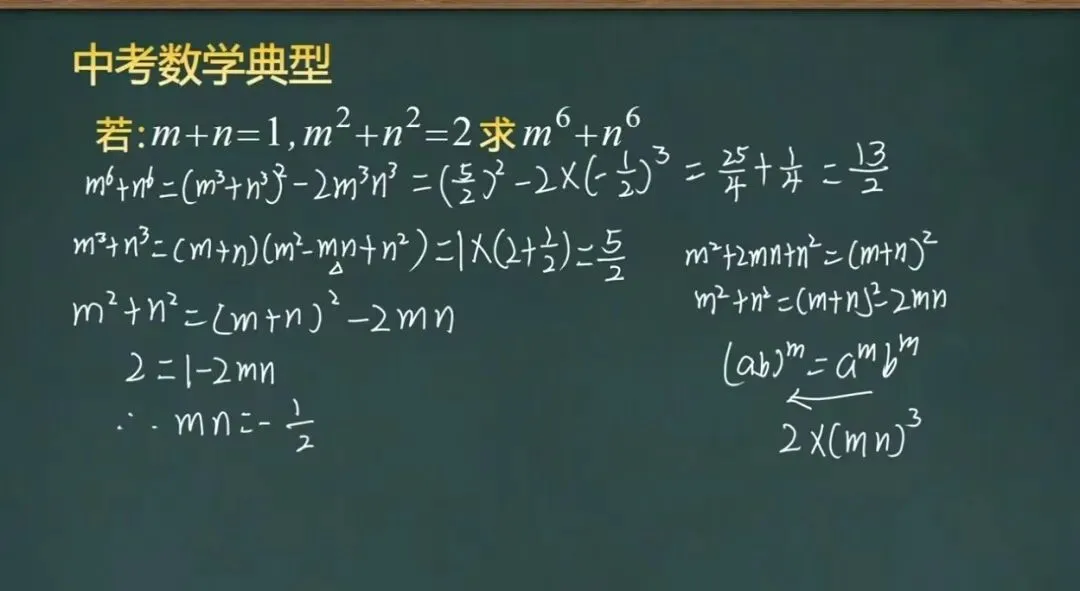 中考数学典型
若:m+n=1,m²+n²=2求m⁶+n⁶
m⁶+n⁶=(m³+n³)²-2m³n³=(5/2)²-2×(-1/2)³=25/4+1/4=13/2
m³+n³=(m+n)(m²-mn+n²)=1×(2+1/2)=5/2
m²+n²=(m+n)²-2mn
2=1-2mn
∴mn=-1/2
m²+2mn+n²=(m+n)²
m²+n²=(m+n)²-2mn
(ab)ᵐ=aᵐbᵐ
2×(mn)³